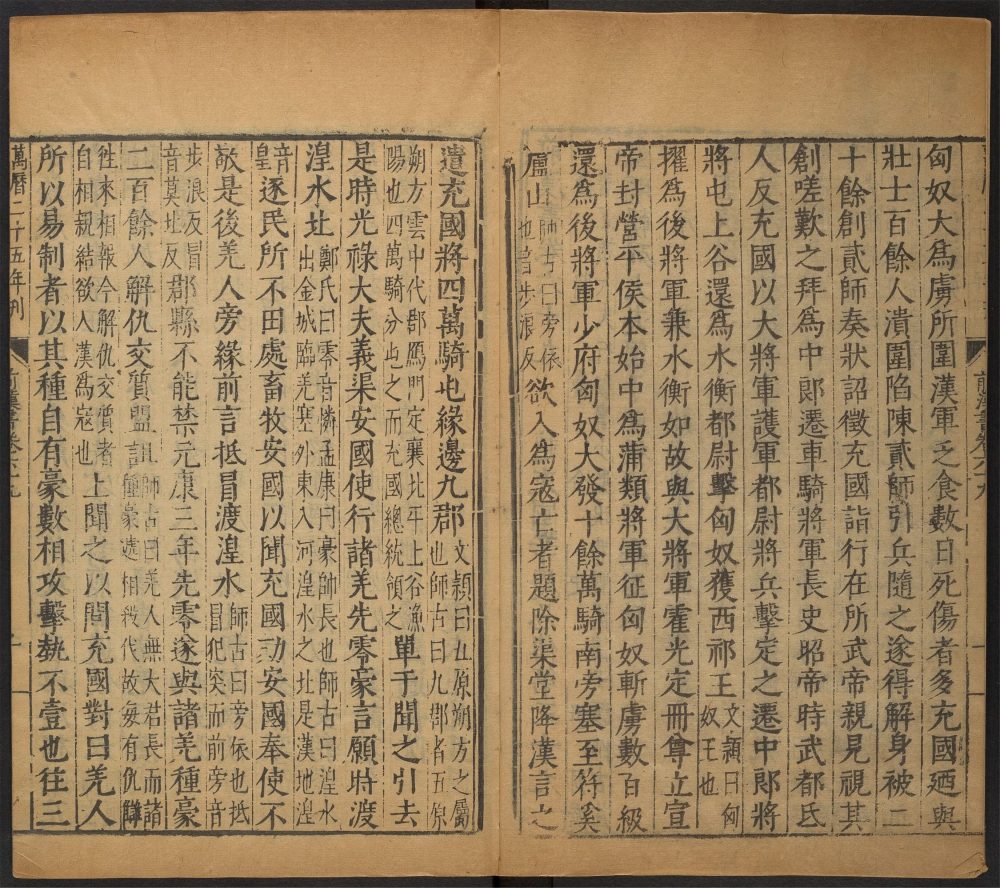 匈奴大爲虜所圍漢軍乏食數日死傷者多充國廼與
壯士百餘人潰圍陷陳貳師引兵隨之遂得解身被二
十餘創貳師奏狀詔徵充國詣行在所武帝親見視其
創嗟歎之拜爲中郎遷車騎將軍長史昭帝時武都氐
人反充國以大將軍護軍都尉將兵擊定之遷中郎將
將屯上谷還爲水衡都尉擊匈奴獲西祁王文穎曰匈奴王也
擢爲後將軍兼水衡如故與大將軍霍光定冊尊立宣
帝封營平侯本始中爲蒲類將軍征匈奴斬虜數百級
還爲後將軍少府匈奴大發十餘萬騎南旁塞至符奚
廬山師古曰旁依也音步浪反欲入爲寇亡者題除渠堂降漢言之
前漢書卷六十九
遣充國將四萬騎屯緣邊九郡文穎曰五原朔方之屬也師古曰九郡者五原
朔方雲中代郡鴈門定襄北平上谷漁陽也四萬騎分屯之而充國總統領之單于聞之引去
是時光祿大夫義渠安國使行諸羌先零豪言願時渡
湟水北鄭氏曰零音憐孟康曰豪帥長也師古曰湟水出金城臨羌塞外東入河湟水之北是漢地湟
音皇逐民所不田處畜牧安國以聞充國劾安國奉使不
敬是後羌人旁緣前言抵冒渡湟水師古曰旁依也抵冒犯突而前旁音
步浪反冒音莫北反郡縣不能禁元康三年先零遂與諸羌種豪
二百餘人解仇交質盟詛師古曰羌人無大君長而諸種豪遞相殺伐故每有仇讎
往來相報今解仇交質者自相親結欲入漢爲寇也上聞之以問充國對曰羌人
所以易制者以其種自有豪數相攻擊埶不壹也往三
萬曆二十五年刊
前漢書卷六十九